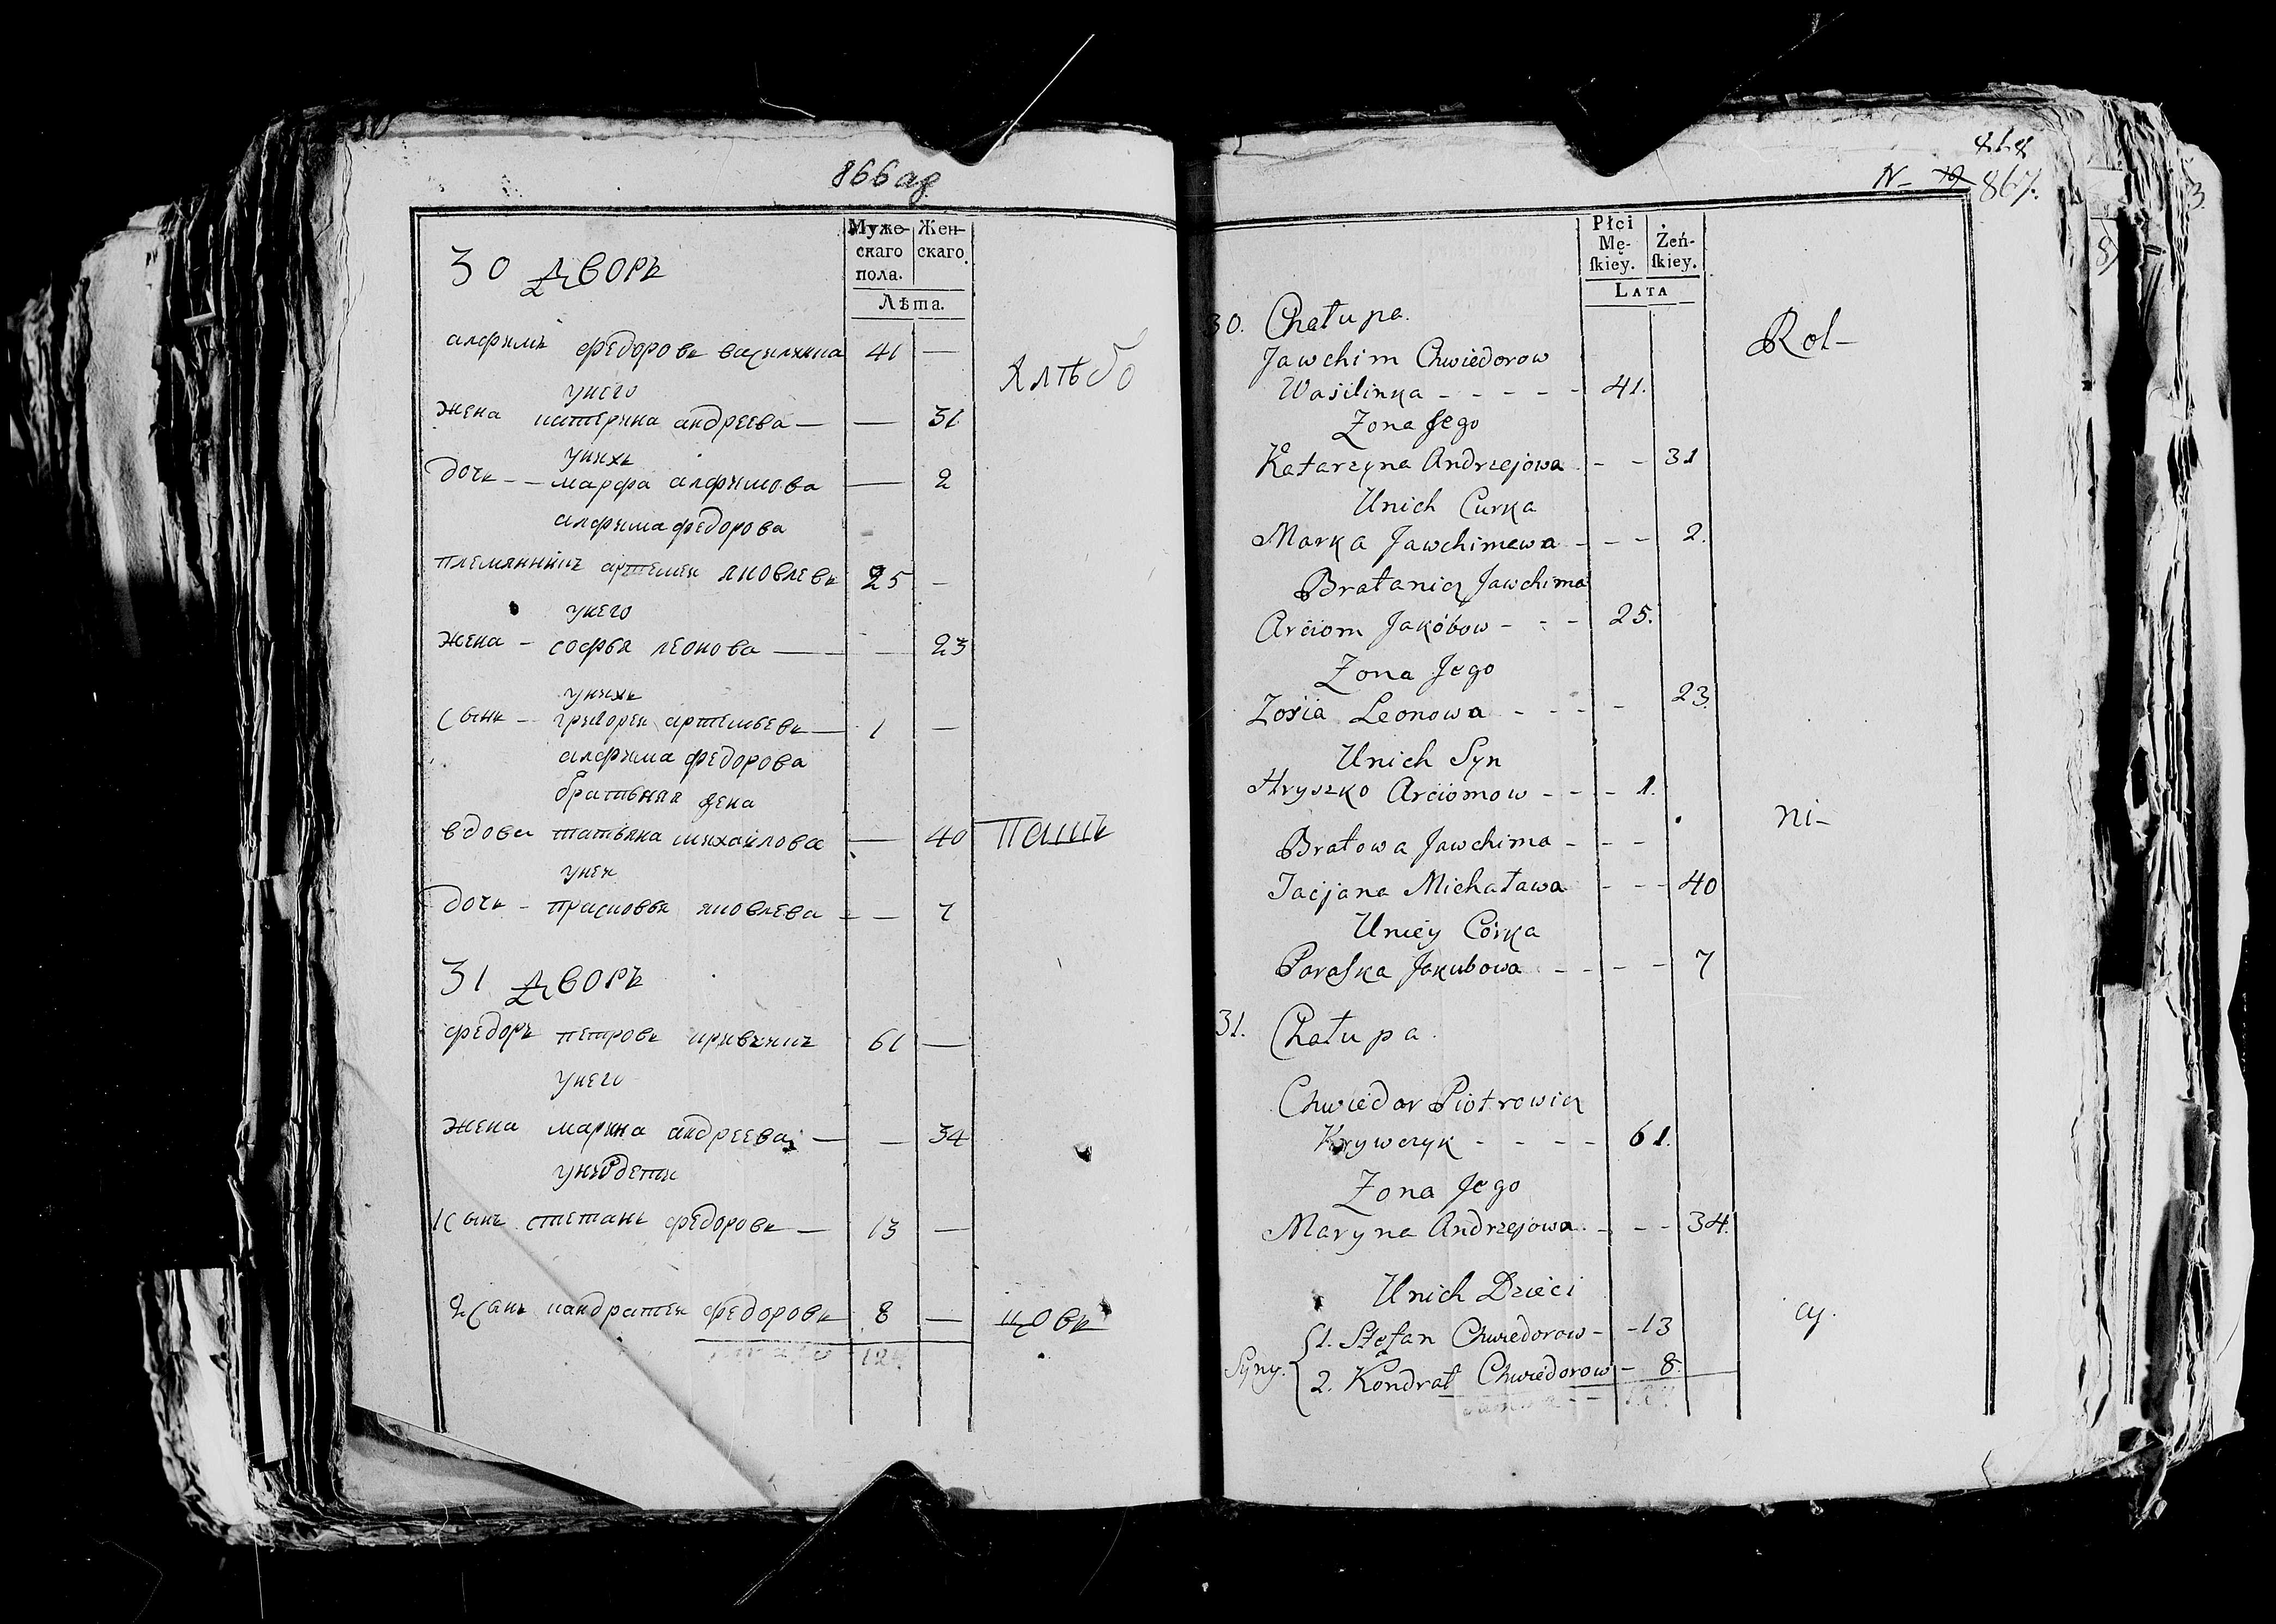 866 об.
Муже-
скаго
пола.
Жен-
скаго.
Лѣта.
30 Дворъ
алфимъ федоровъ василинка 41 —
унего
жена катерина андреева — — 31
унихъ
дочь - - марфа алфимова — 2
алфима федорова
племянникъ артемеи яковлевъ 25 —
унего
жена - софья леонова — — 23
унихъ
сынъ - григореи артемьевъ — 1 —
алфима федорова
братьняя жена
вдова татьяна михаилова — 40
унеи
дочь - прасковья яковлева — — 7
31 Дворъ
федоръ петровъ кривчикъ 61 —
унего
жена марина андреева — — 34
унихъ дети
1 сынъ степанъ федоровъ — 13 —
2 сынъ кандратеи федоровъ 8 —
Хлѣбо
паш
цовъ
868
N- 867.
Płci
Mę-
ſkiey.
Żeń-
ſkiey.
LATA
30. Chałupa.
Jawchim Chwiedorow
Wasilinka - - - - - 41.
Zona Jego
Katarzyna Andrzejowa - - 31
Unich Curka
Marka Jawchimewa - - - 2.
Bratanicz Jawchima
Arciom Jakóbow - - - 25.
Zona Jego
Zosia Leonowa - - - - 23.
Unich Syn
Hryszko Arciomow - - - 1.
Bratowa Jawchima - - -
Tacjana Michaława - - - 40
Uniey Córka
Paraſka Jakubowa - - - - 7
31. Chałupa.
Chwiedor Piotrowicz
Krywczyk - - - - 61.
Zona Jego
Maryna Andrzejowa - - - 34.
Unich Dzieci
1. Stefan Chwiedorow - - 13
Syny.
2. Kondrat Chwiedorow - 8.
Rol-
ni-
cy.